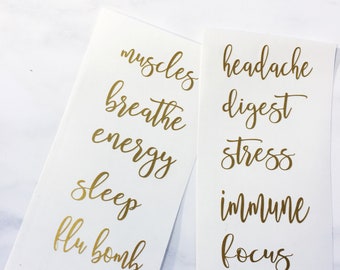 muscles
breathe
energy
sleep
flu bomb
headache
digest
stress
immune
focus